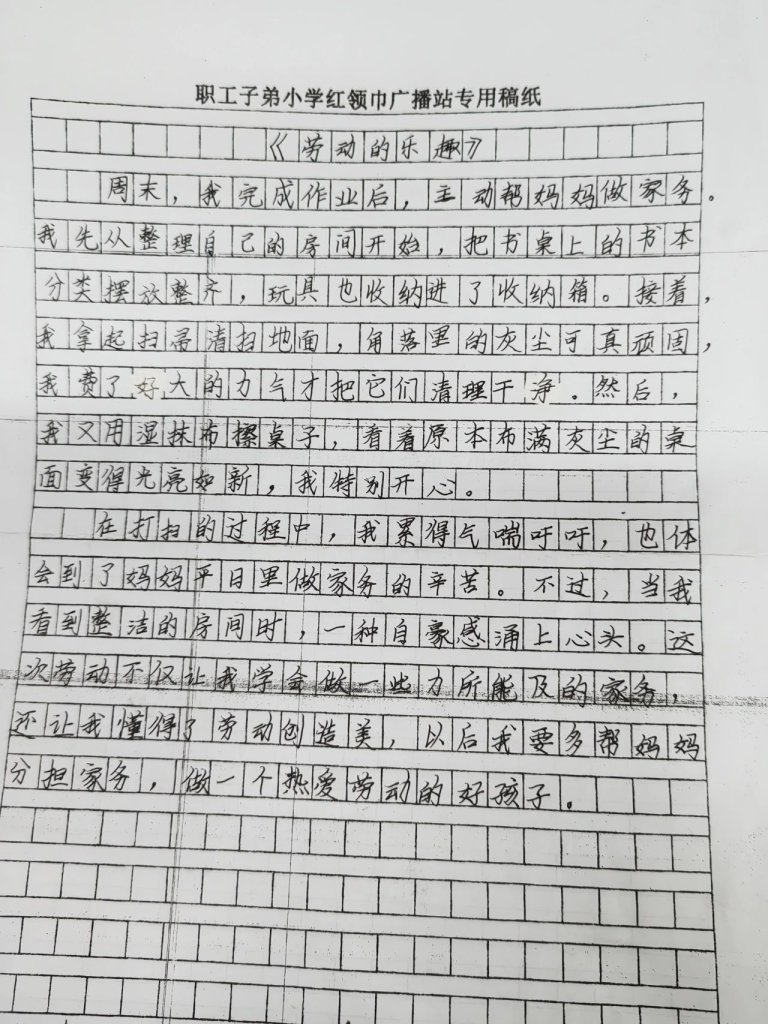 职工子弟小学红领巾广播站专用稿纸
《劳动的乐趣》
周末，我完成作业后，主动帮妈妈做家务。
我先从整理自己的房间开始，把书桌上的书本
分类摆放整齐，玩具也收纳进了收纳箱。接着，
我拿起扫帚清扫地面，角落里的灰尘可真顽固，
我费了好大的力气才把它们清理干净。然后，
我又用湿抹布擦桌子，看着原本布满灰尘的桌
面变得光亮如新，我特别开心。
在打扫的过程中，我累得气喘吁吁，也体
会到了妈妈平日里做家务的辛苦。不过，当我
看到整洁的房间时，一种自豪感涌上心头。这
次劳动不仅让我学会做一些力所能及的家务，
还让我懂得了劳动创造美，以后我要多帮妈妈
分担家务，做一个热爱劳动的好孩子。